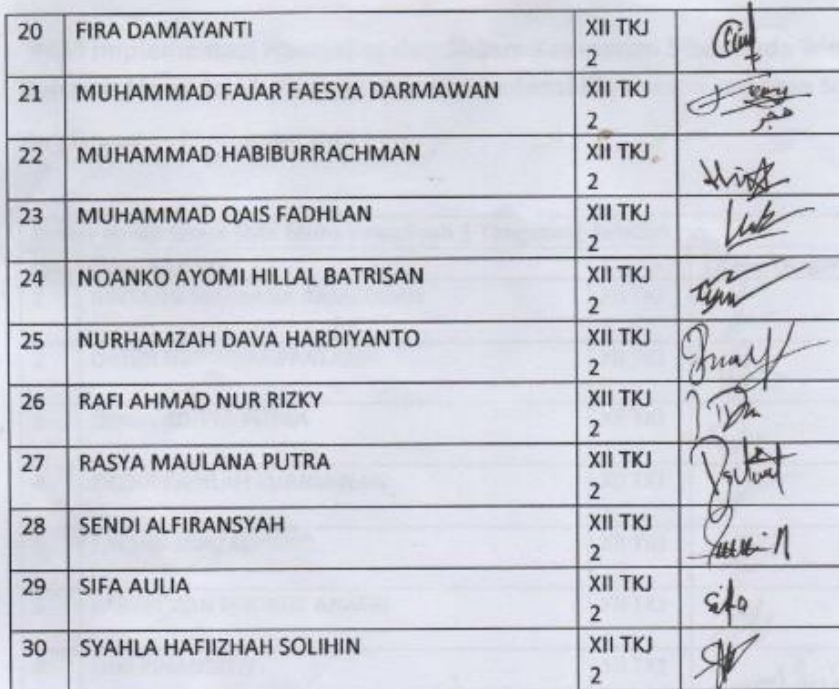 20 FIRA DAMAYANTI XII TKJ
2
21 MUHAMMAD FAJAR FAESYA DARMAWAN XII TKJ
2
22 MUHAMMAD HABIBURRACHMAN XII TKJ
2
23 MUHAMMAD QAIS FADHLAN XII TKJ
2
24 NOANKO AYOMI HILLAL BATRISAN XII TKJ
2
25 NURHAMZAH DAVA HARDIYANTO XII TKJ
2
26 RAFI AHMAD NUR RIZKY XII TKJ
2
27 RASYA MAULANA PUTRA XII TKJ
2
28 SENDI ALFIRANSYAH XII TKJ
2
29 SIFA AULIA XII TKJ
2
30 SYAHLA HAFIIZHAH SOLIHIN XII TKJ
2